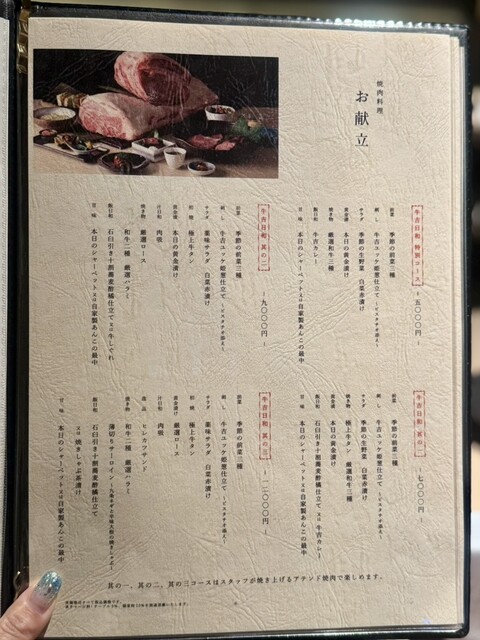 焼肉料理
お献立
牛吉日和 特別コース
~五〇〇〇円~
前菜 季節の前菜三種
刺し 牛吉ユッケ姫葱仕立て~ピスタチオ添え~
サラダ 季節の生野菜 白菜赤漬け
黄金漬 本日の黄金漬け
焼き物 厳選和牛三種
飯日和 牛吉カレー
甘味 本日のシャーベット又は自家製あんこの最中
牛吉日和 其の一
~七〇〇〇円~
前菜 季節の前菜三種
刺し 牛吉ユッケ姫葱仕立て~ピスタチオ添え~
サラダ 季節の生野菜 白菜赤漬け
焼き物 極上牛タン 厳選和牛三種
黄金漬 本日の黄金漬け
飯日和 石臼引き十割蕎麦酢橘仕立て 又は 牛吉カレー
甘味 本日のシャーベット又は自家製あんこの最中
牛吉日和 其の二
~九〇〇〇円~
前菜 季節の前菜三種
刺し 牛吉ユッケ姫葱仕立て~ピスタチオ添え~
サラダ 薬味サラダ 白菜赤漬け
初焼 極上牛タン
黄金漬 本日の黄金漬け
汁日和 肉吸
焼き物 厳選ロース
和牛二種 厳選ハラミ
飯日和 石臼引き十割蕎麦酢橘仕立て 又は 牛しぐれ
甘味 本日のシャーベット又は自家製あんこの最中
牛吉日和 其の三
~一二〇〇〇円~
前菜 季節の前菜三種
刺し 牛吉ユッケ姫葱仕立て~ピスタチオ添え~
サラダ 薬味サラダ 白菜赤漬け
初焼 極上牛タン
黄金漬け 厳選ロース
汁日和 肉吸
逸品 ヒレカツサンド
焼き物 和牛二種 厳選ハラミ
薄切りサーロイン
飯日和 石臼引き十割蕎麦酢橘仕立て
又は 焼きしゃぶ茶漬け
甘味 本日のシャーベット又は自家製あんこの最中
其の一、其の二、其の三コースはスタッフが焼き上げるアテンド焼肉で楽しめます。